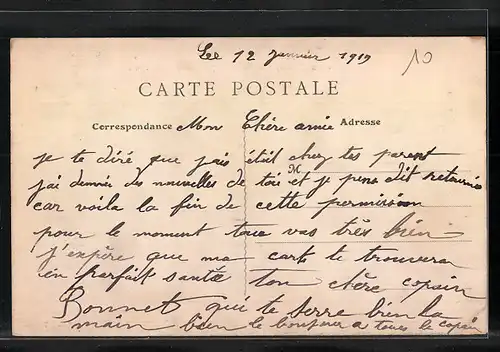 Le 12 Janvier 1919
10
CARTE POSTALE
Correspondance Adresse
Mon Chère amie
je te diré que jais était chez tes parent
jai donnée des nouvelles de toi et M je pens dêt retourné
car voila la fin de cette permision
pour le moment tous vas très bien
j'expère que ma carte te trouvera
en parfait santée ton chère copain
Bonnet qui te serre bien la
main bien le bonjour a tous le copain